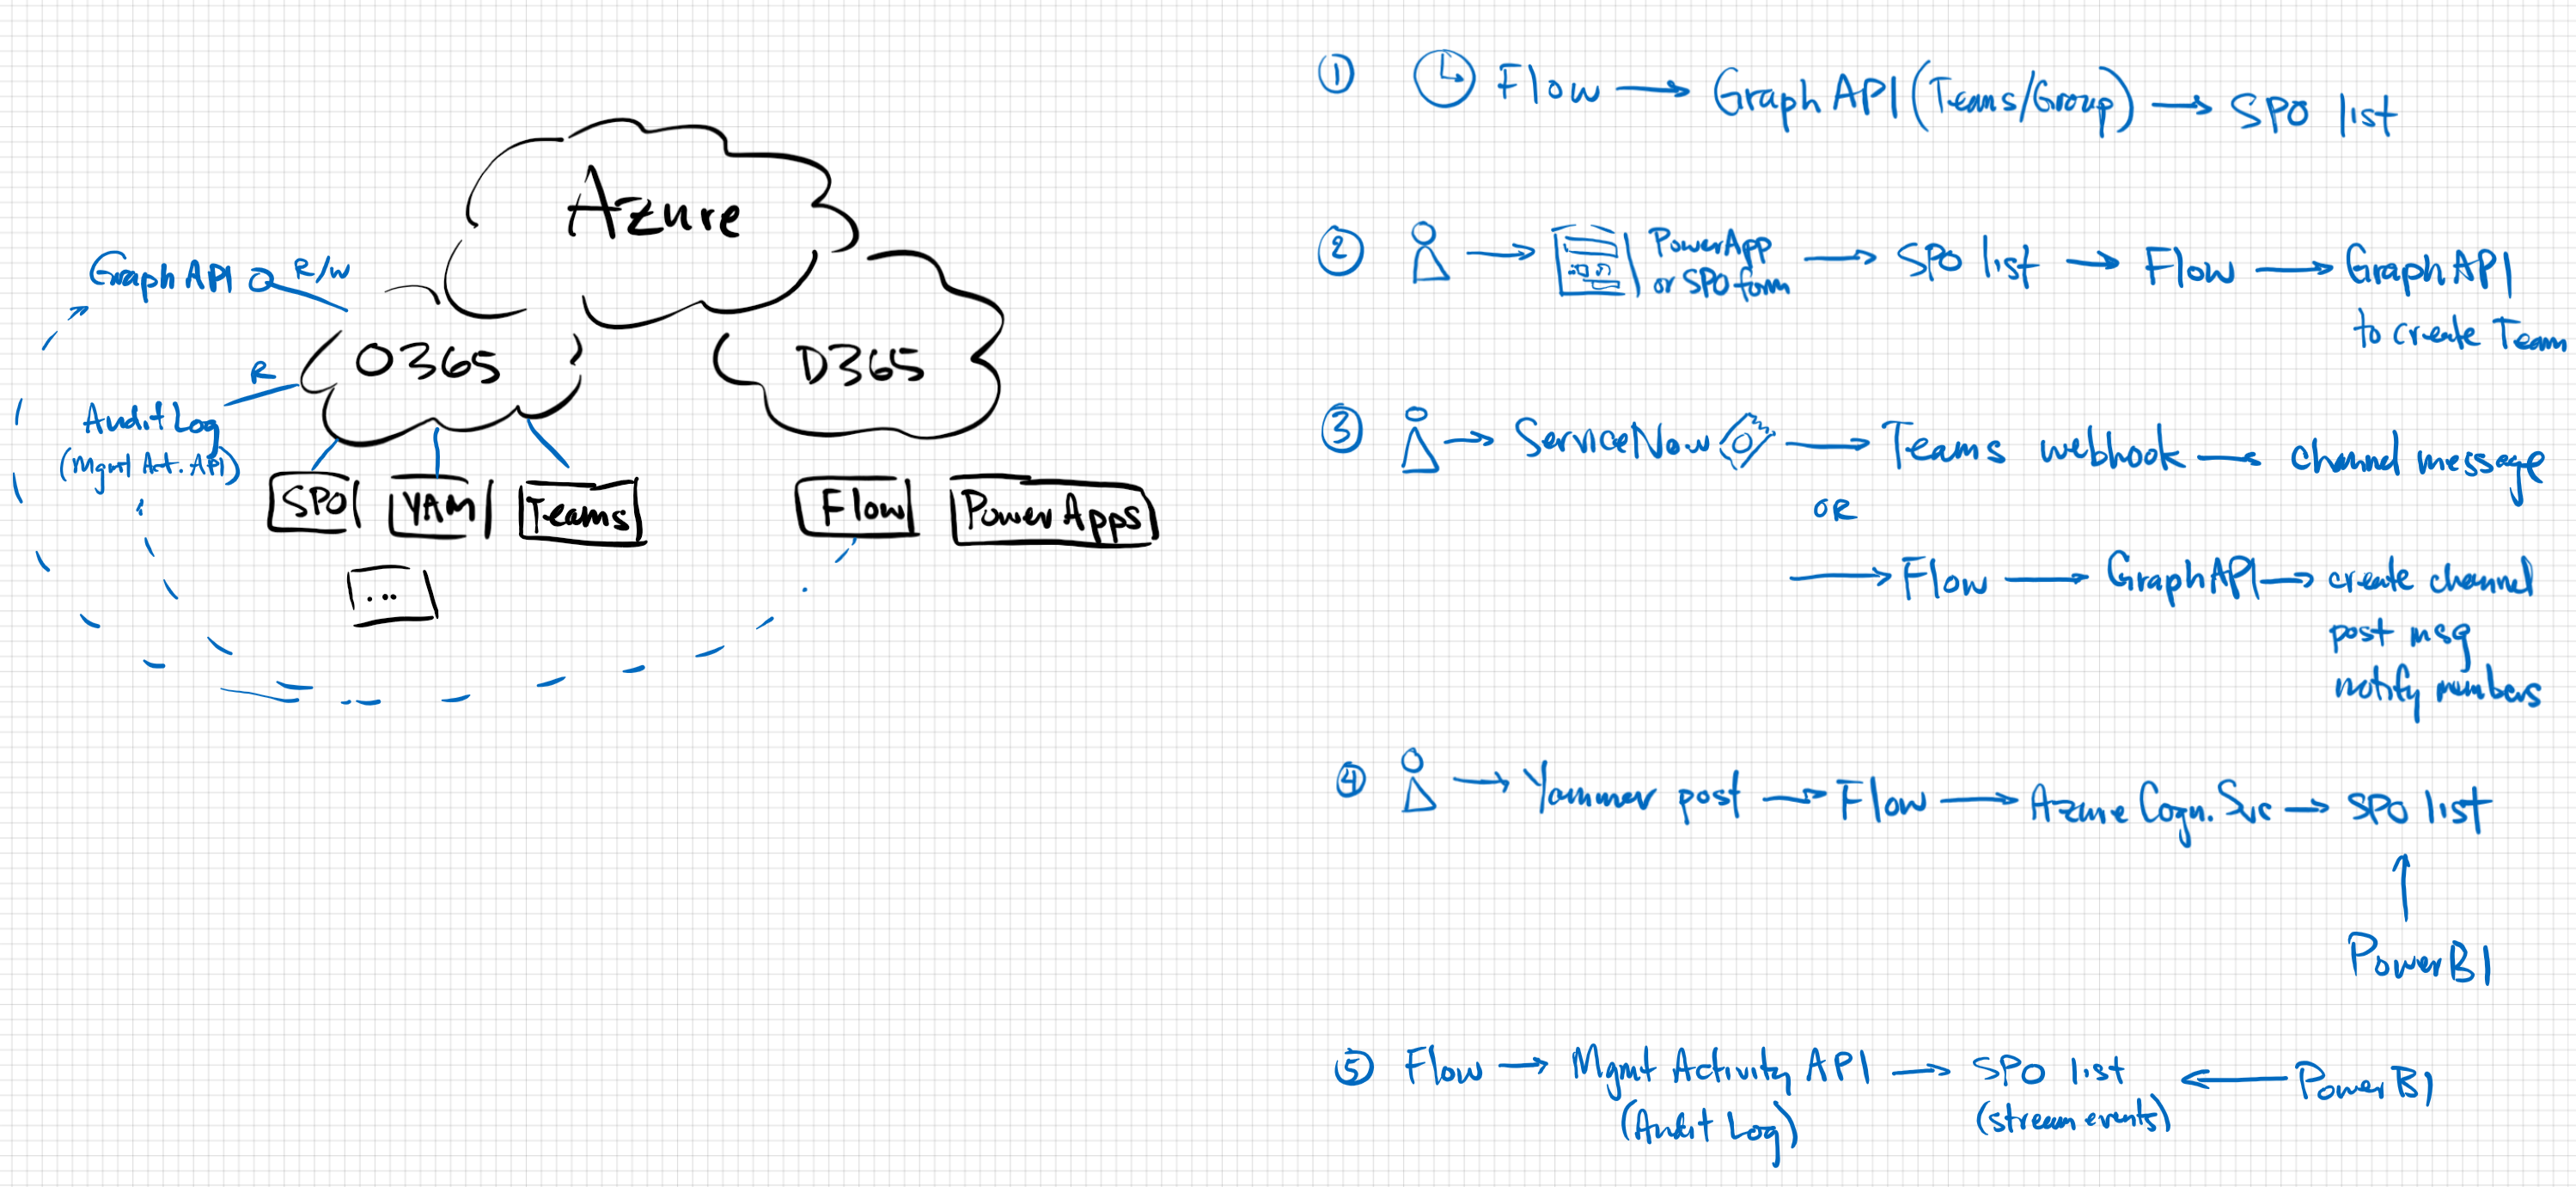 Azure
Graph API R/W
O365
D365
R
Audit Log
(Mgmt Act. API)
SPO
YAM
Teams
Flow
PowerApps
...
① Flow → Graph API (Teams/Group) → SPO list
② → PowerApp
or SPO form → SPO list → Flow → Graph API
to create Team
③ → ServiceNow → Teams webhook → channel message
OR
→ Flow → Graph API → create channel
post msg
notify members
④ → Yammer post → Flow → Azure Cogn. Svc → SPO list
↑
PowerBI
⑤ Flow → Mgmt Activity API → SPO list ← PowerBI
(Audit Log)
(stream events)